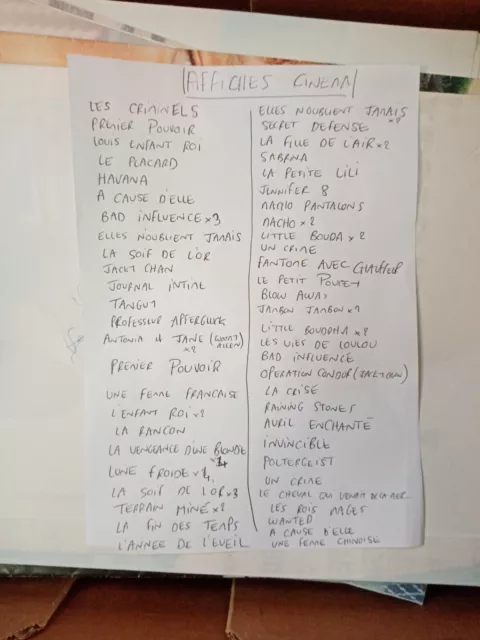 AFFICHES CINEMA
LES CRIMINELS
PREMIER POUVOIR
LOUIS ENFANT ROI
LE PLACARD
HAVANA
A CAUSE D'ELLE
BAD INFLUENCE x3
ELLES N'OUBLIENT JAMAIS
LA SOIF DE L'OR
JACKY CHAN
JOURNAL INTIME
TANGUY
PROFESSEUR APFERGLUCK
ANTONIA & JANE (WOODY ALLEN)
x2
PREMIER POUVOIR
UNE FEMME FRANCAISE
L'ENFANT ROI x2
LA RANCON
LA VENGEANCE D'UNE BLONDE
x4
LUNE FROIDE x4
LA SOIF DE L'OR x3
TERRAIN MINÉ x2
LA FIN DES TEMPS
L'ANNEE DE L'EVEIL
ELLES NOUBLIENT JAMAIS
x2
SECRET DEFENSE
LA FILLE DE L'AIR x2
SABRINA
LA PETITE LILI
JENNIFER 8
PANTALONS
MACHO x2
LITTLE BOUDA x2
UN CRIME
FANTOME AVEC CHAUFFEUR
LE PETIT POUCET
BLOW AWAY
JAMBON JAMBON x2
LITTLE BOUDDHA x2
LES VIES DE LOULOU
BAD INFLUENCE
OPERATION CONDOR
LA CRISE
RAINING STONES
AVRIL ENCHANTÉ
INVINCIBLE
POLTERGEIST
UN CRIME
LE CHEVAL QUI VENAIT DE LA MER
LES ROIS MAGES
WANTED
A CAUSE D'ELLE
UNE FEMME CHINOISE